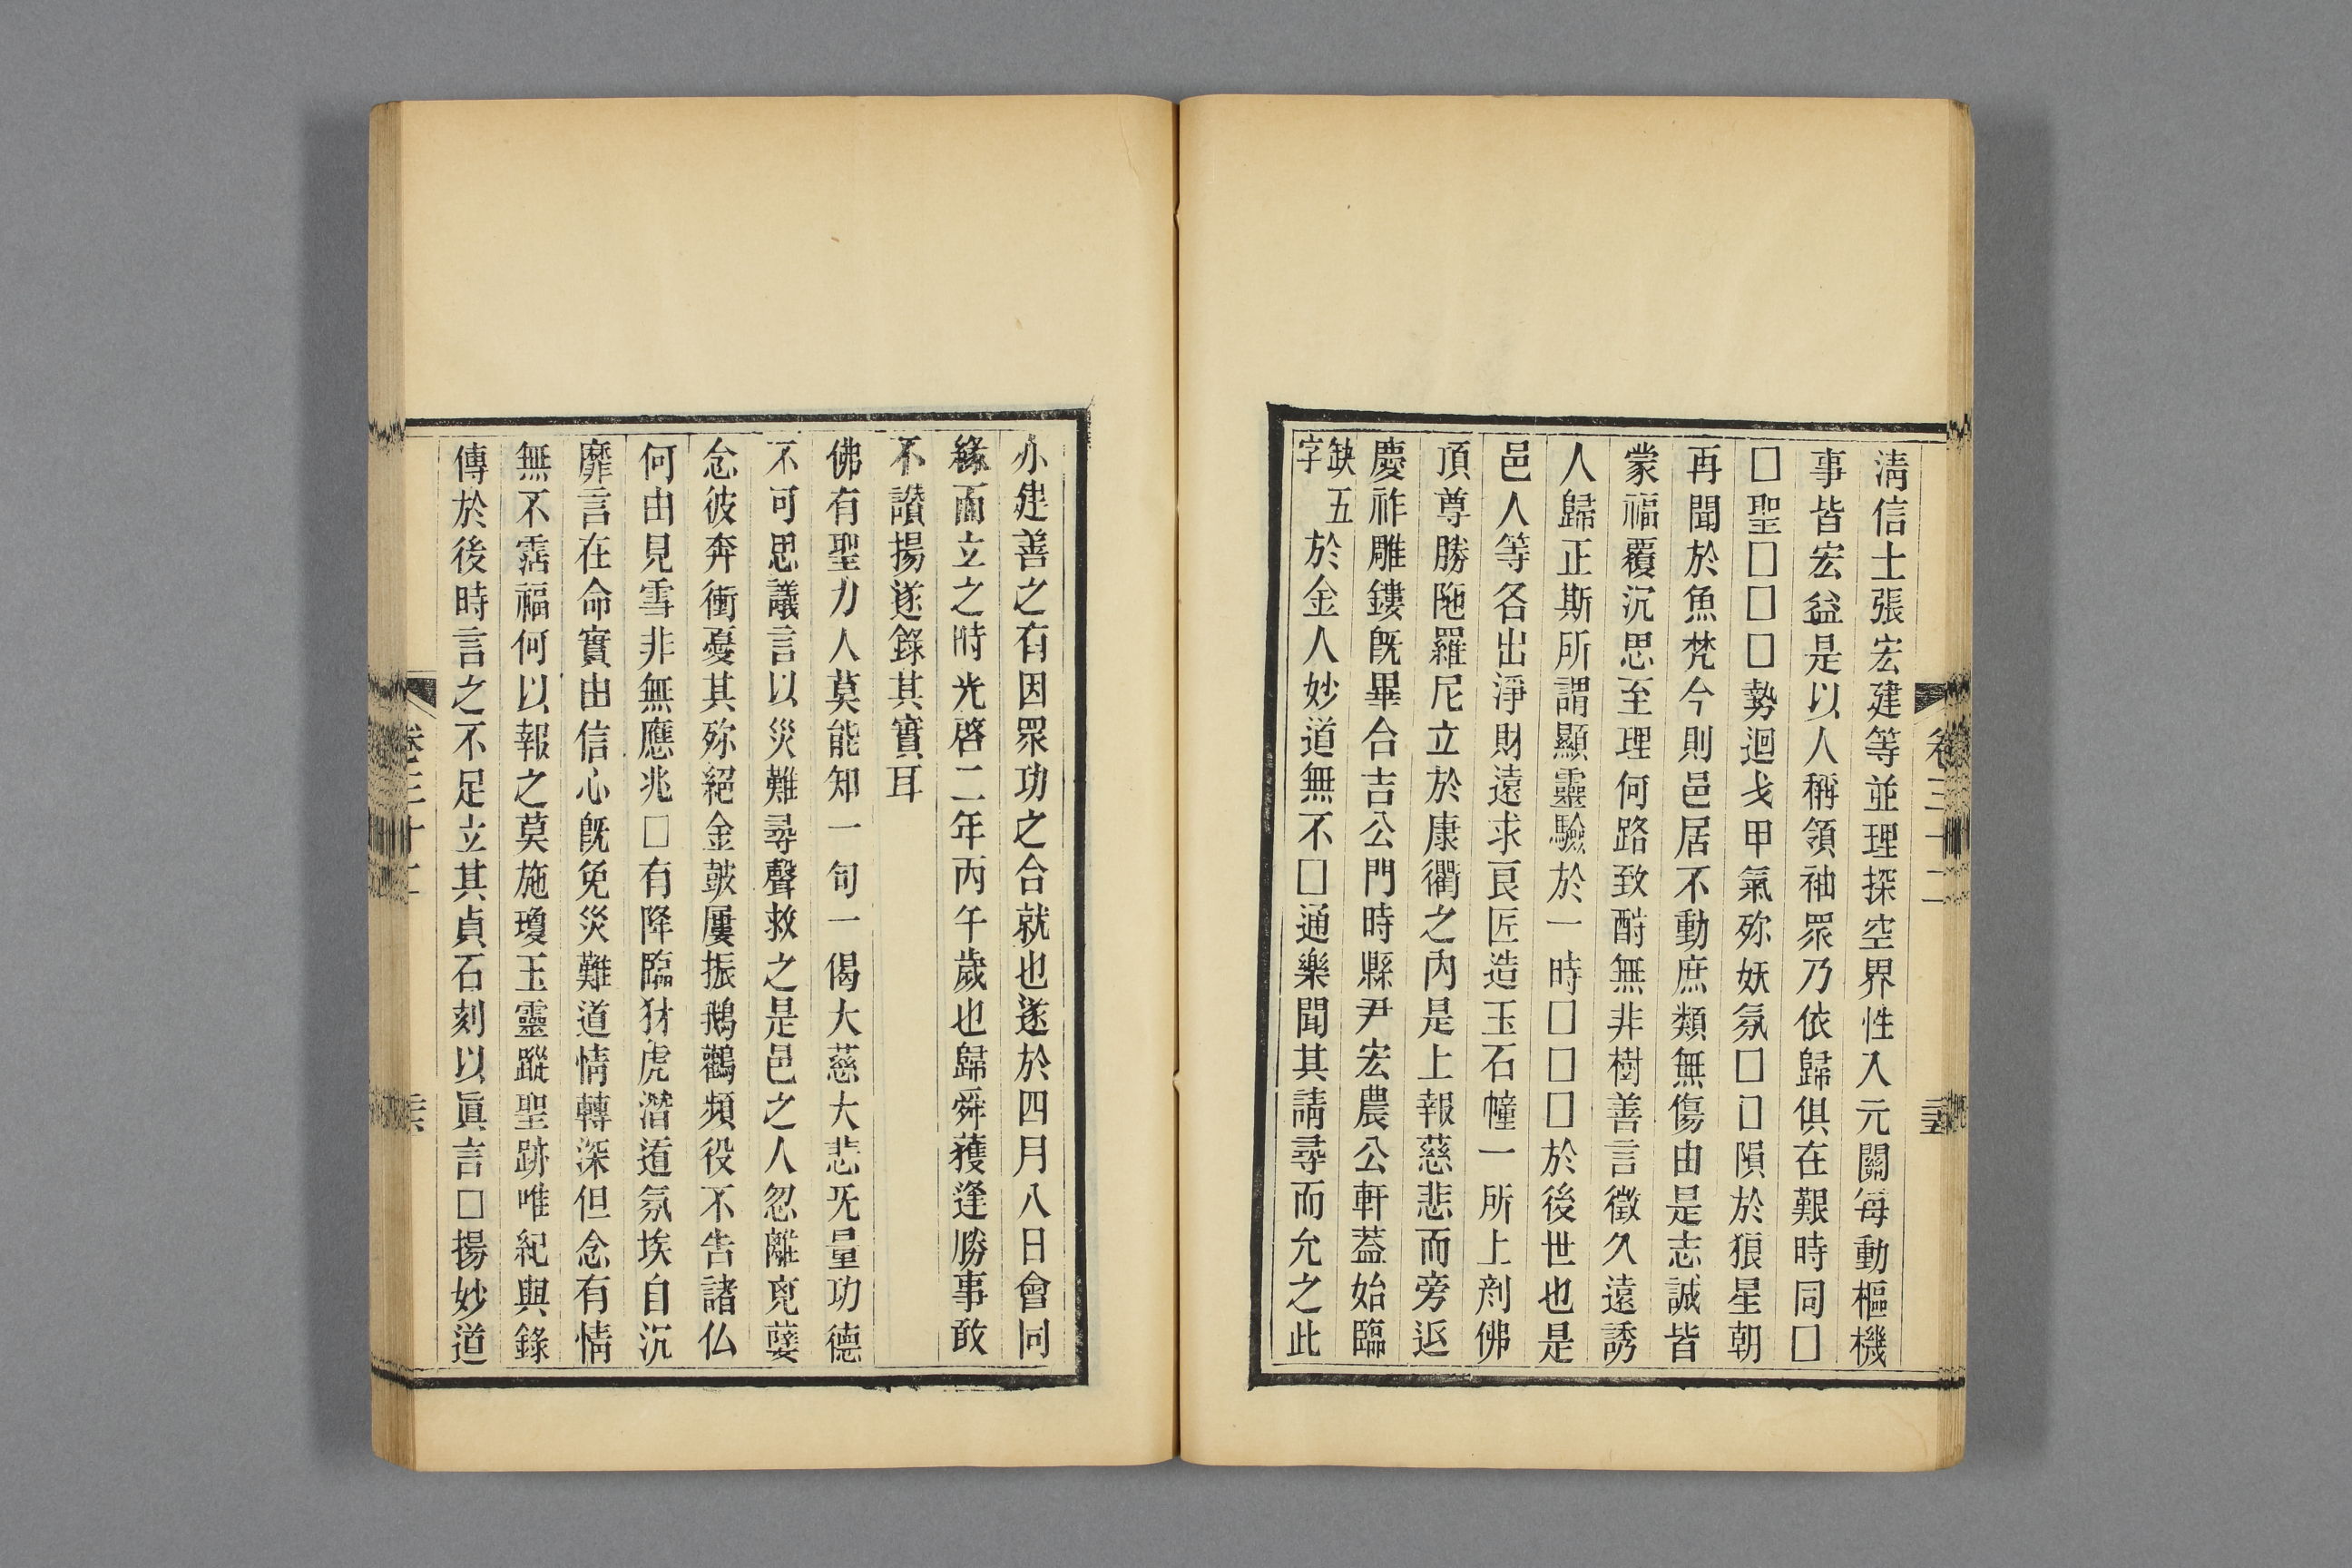 清信士張宏建等並理探空界性入元關每動樞機
事皆宏益是以人稱領袖眾乃依歸俱在艱時同□
□聖□□□勢迴戈甲氣殄妖氛□□隕於狼星朝
再聞於魚梵今則邑居不動庶類無傷由是志誠皆
蒙福覆沉思至理何路致酧無非樹善言徵久遠誘
人歸正斯所謂顯靈驗於一時□□□於後世也是
邑人等各出淨財遠求良匠造玉石幢一所上剙佛
頂尊勝陁羅尼立於康衢之內是上報慈悲而旁返
慶祚雕鏤旣畢合吉公門時縣尹宏農公軒蓋始臨
缺五字於金人妙道無不□通樂聞其請尋而允之此
卷三十二
亦建善之有因眾功之合就也遂於四月八日會同
緣而立之時光啓二年丙午歲也歸舜獲逢勝事敢
不讚揚遂錄其實耳
佛有聖力人莫能知一句一偈大慈大悲旡量功德
不可思議言以災難尋聲救之是邑之人忽離寃孽
念彼奔衝憂其殄絕金皷屢振鵝鸛頻役不吿諸仏
何由見雪非無應兆□有降臨犲虎潛逭氛埃自沉
靡言在命實由信心旣免災難道情轉深但念有情
無不霑福何以報之莫施瓊玉靈蹤聖跡唯紀與錄
傳於後時言之不足立其貞石刻以眞言□揚妙道
卷三十二